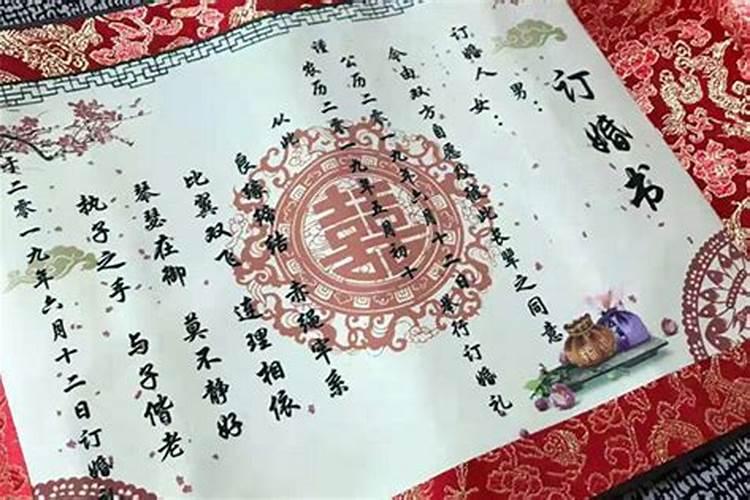 订婚书
订婚人
男：
女：
今由双方自愿及彼此长辈之同意
谨
公历二零一九年六月十二日举行订婚礼
农历二零一九年五月初十
从此
良缘缔结 赤绳牢系
比翼双飞 连理相依
琴瑟在御 莫不静好
执子之手 与子偕老
于二零一九年六月十二日订婚